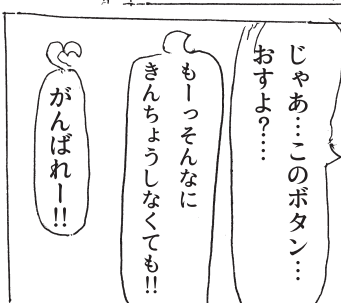 じゃあ…このボタン…
おすよ?…
もーっそんなに
きんちょうしなくても!!
がんばれー!!